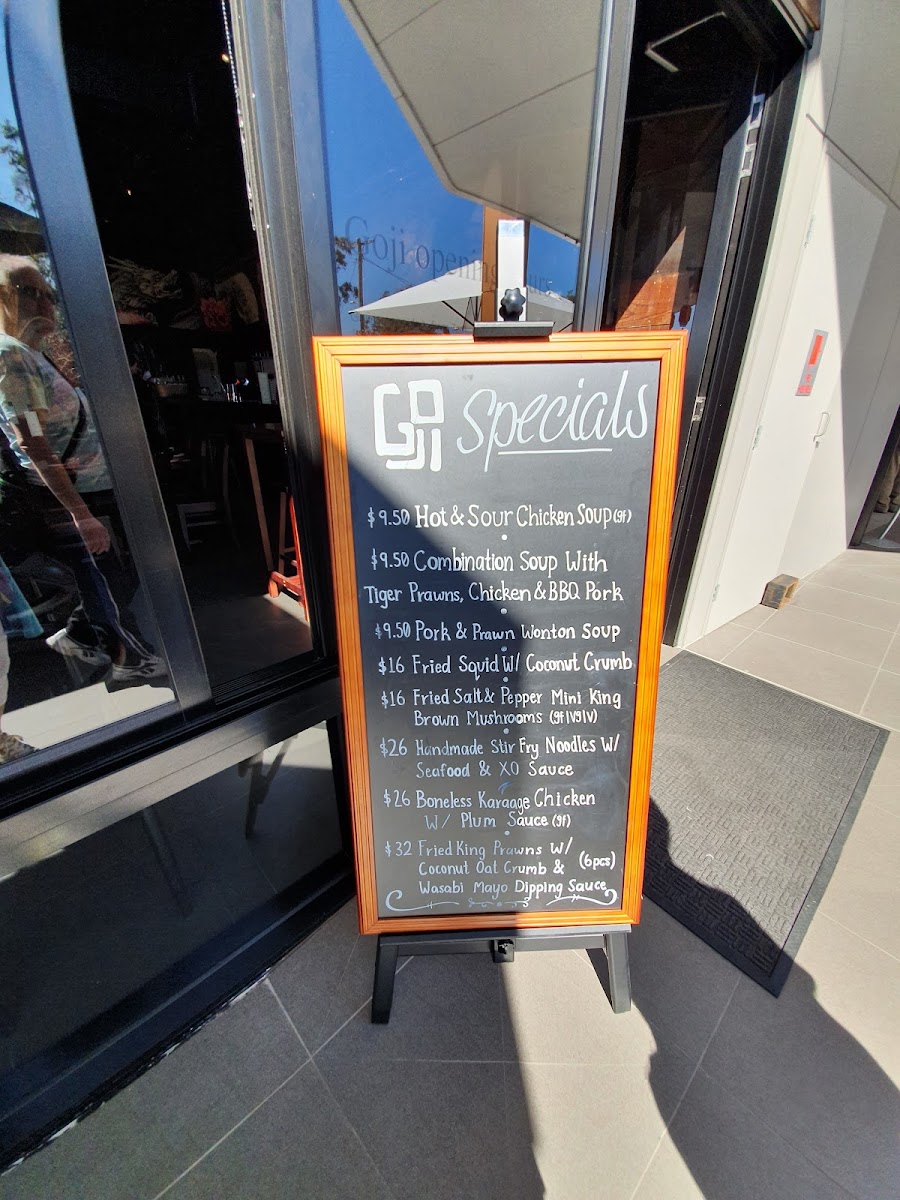 Goji opening
GOJI Specials
$9.50 Hot & Sour Chicken Soup (gf)
$9.50 Combination Soup With
Tiger Prawns, Chicken & BBQ Pork
$9.50 Pork & Prawn Wonton Soup
$16 Fried Squid W/ Coconut Crumb
$16 Fried Salt & Pepper Mini King
Brown Mushrooms (gf|vg|v)
$26 Handmade Stir Fry Noodles W/
Seafood & XO Sauce
$26 Boneless Karaage Chicken
W/ Plum Sauce (gf)
$32 Fried King Prawns W/
Coconut Oat Crumb & (6pcs)
Wasabi Mayo Dipping Sauce